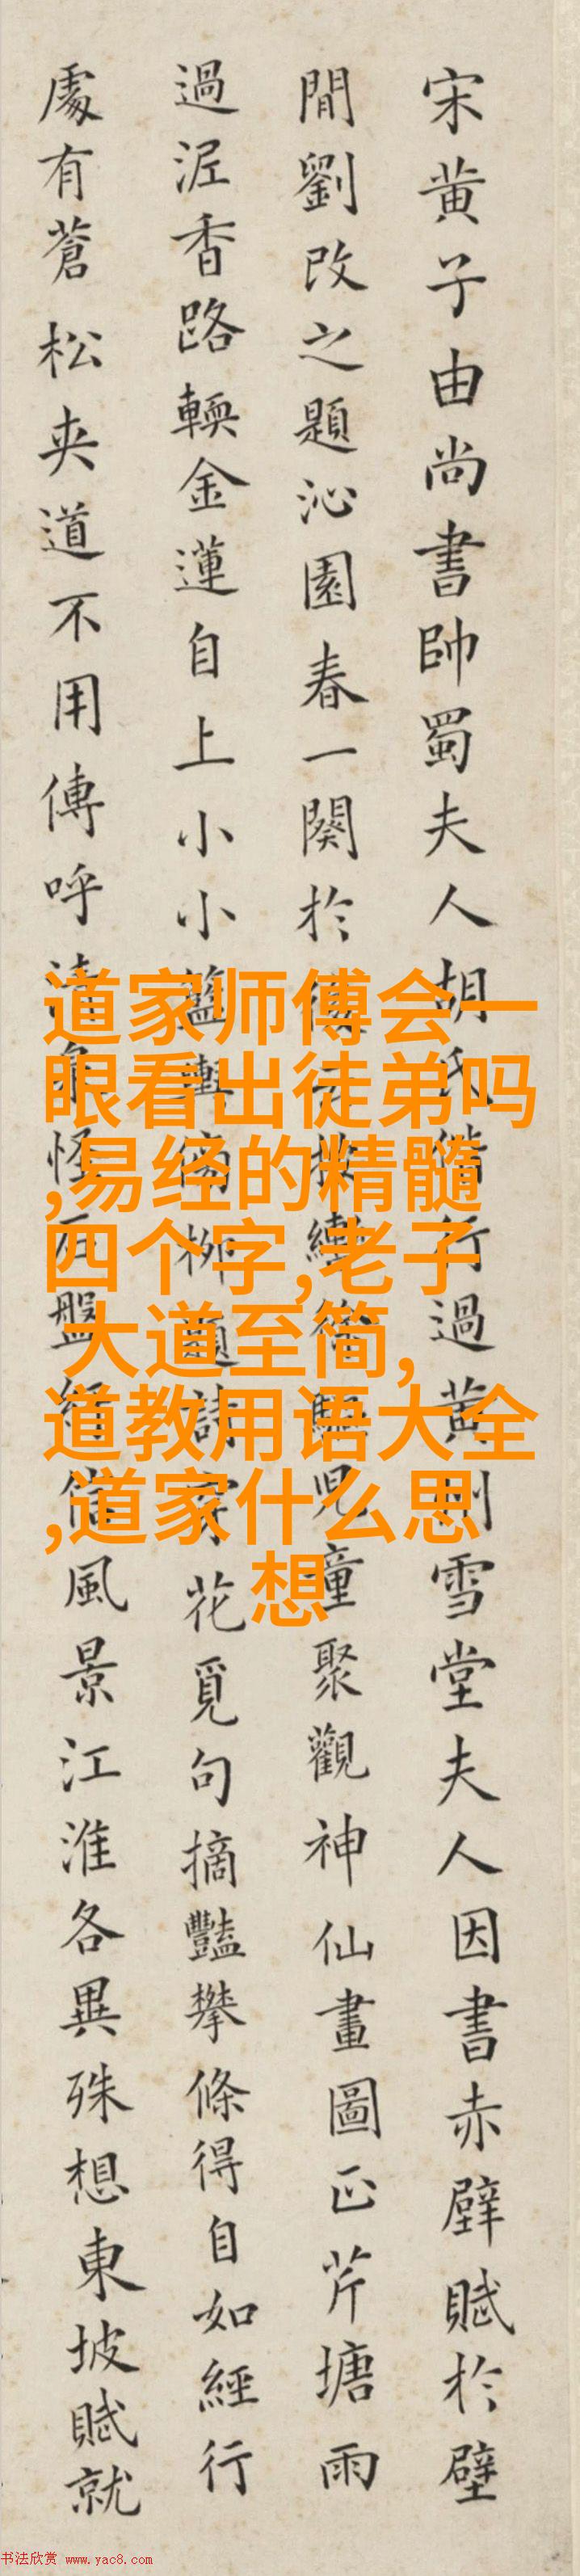 宋黄子由尚書帥蜀夫人胡氏偕行過黄州雪堂夫人因書赤壁賦於壁
間劉改之題沁園春一闋於後云按轡徐驅兒童聚觀神仙畫圖正芹塘雨
過泥香路輭金蓮自上小小籃輿傍柳題詩穿花覓句摘豔攀條得自如經行
處有蒼松夾道不用傳呼清泉怪石盤紆信風景江淮各異殊想東坡賦就
道家师傅会一
眼看出徒弟吗
,易经的精髓
四个字,老子
大道至简,
道教用语大全
,道家什么思
想
书法欣赏 www.yac8.com